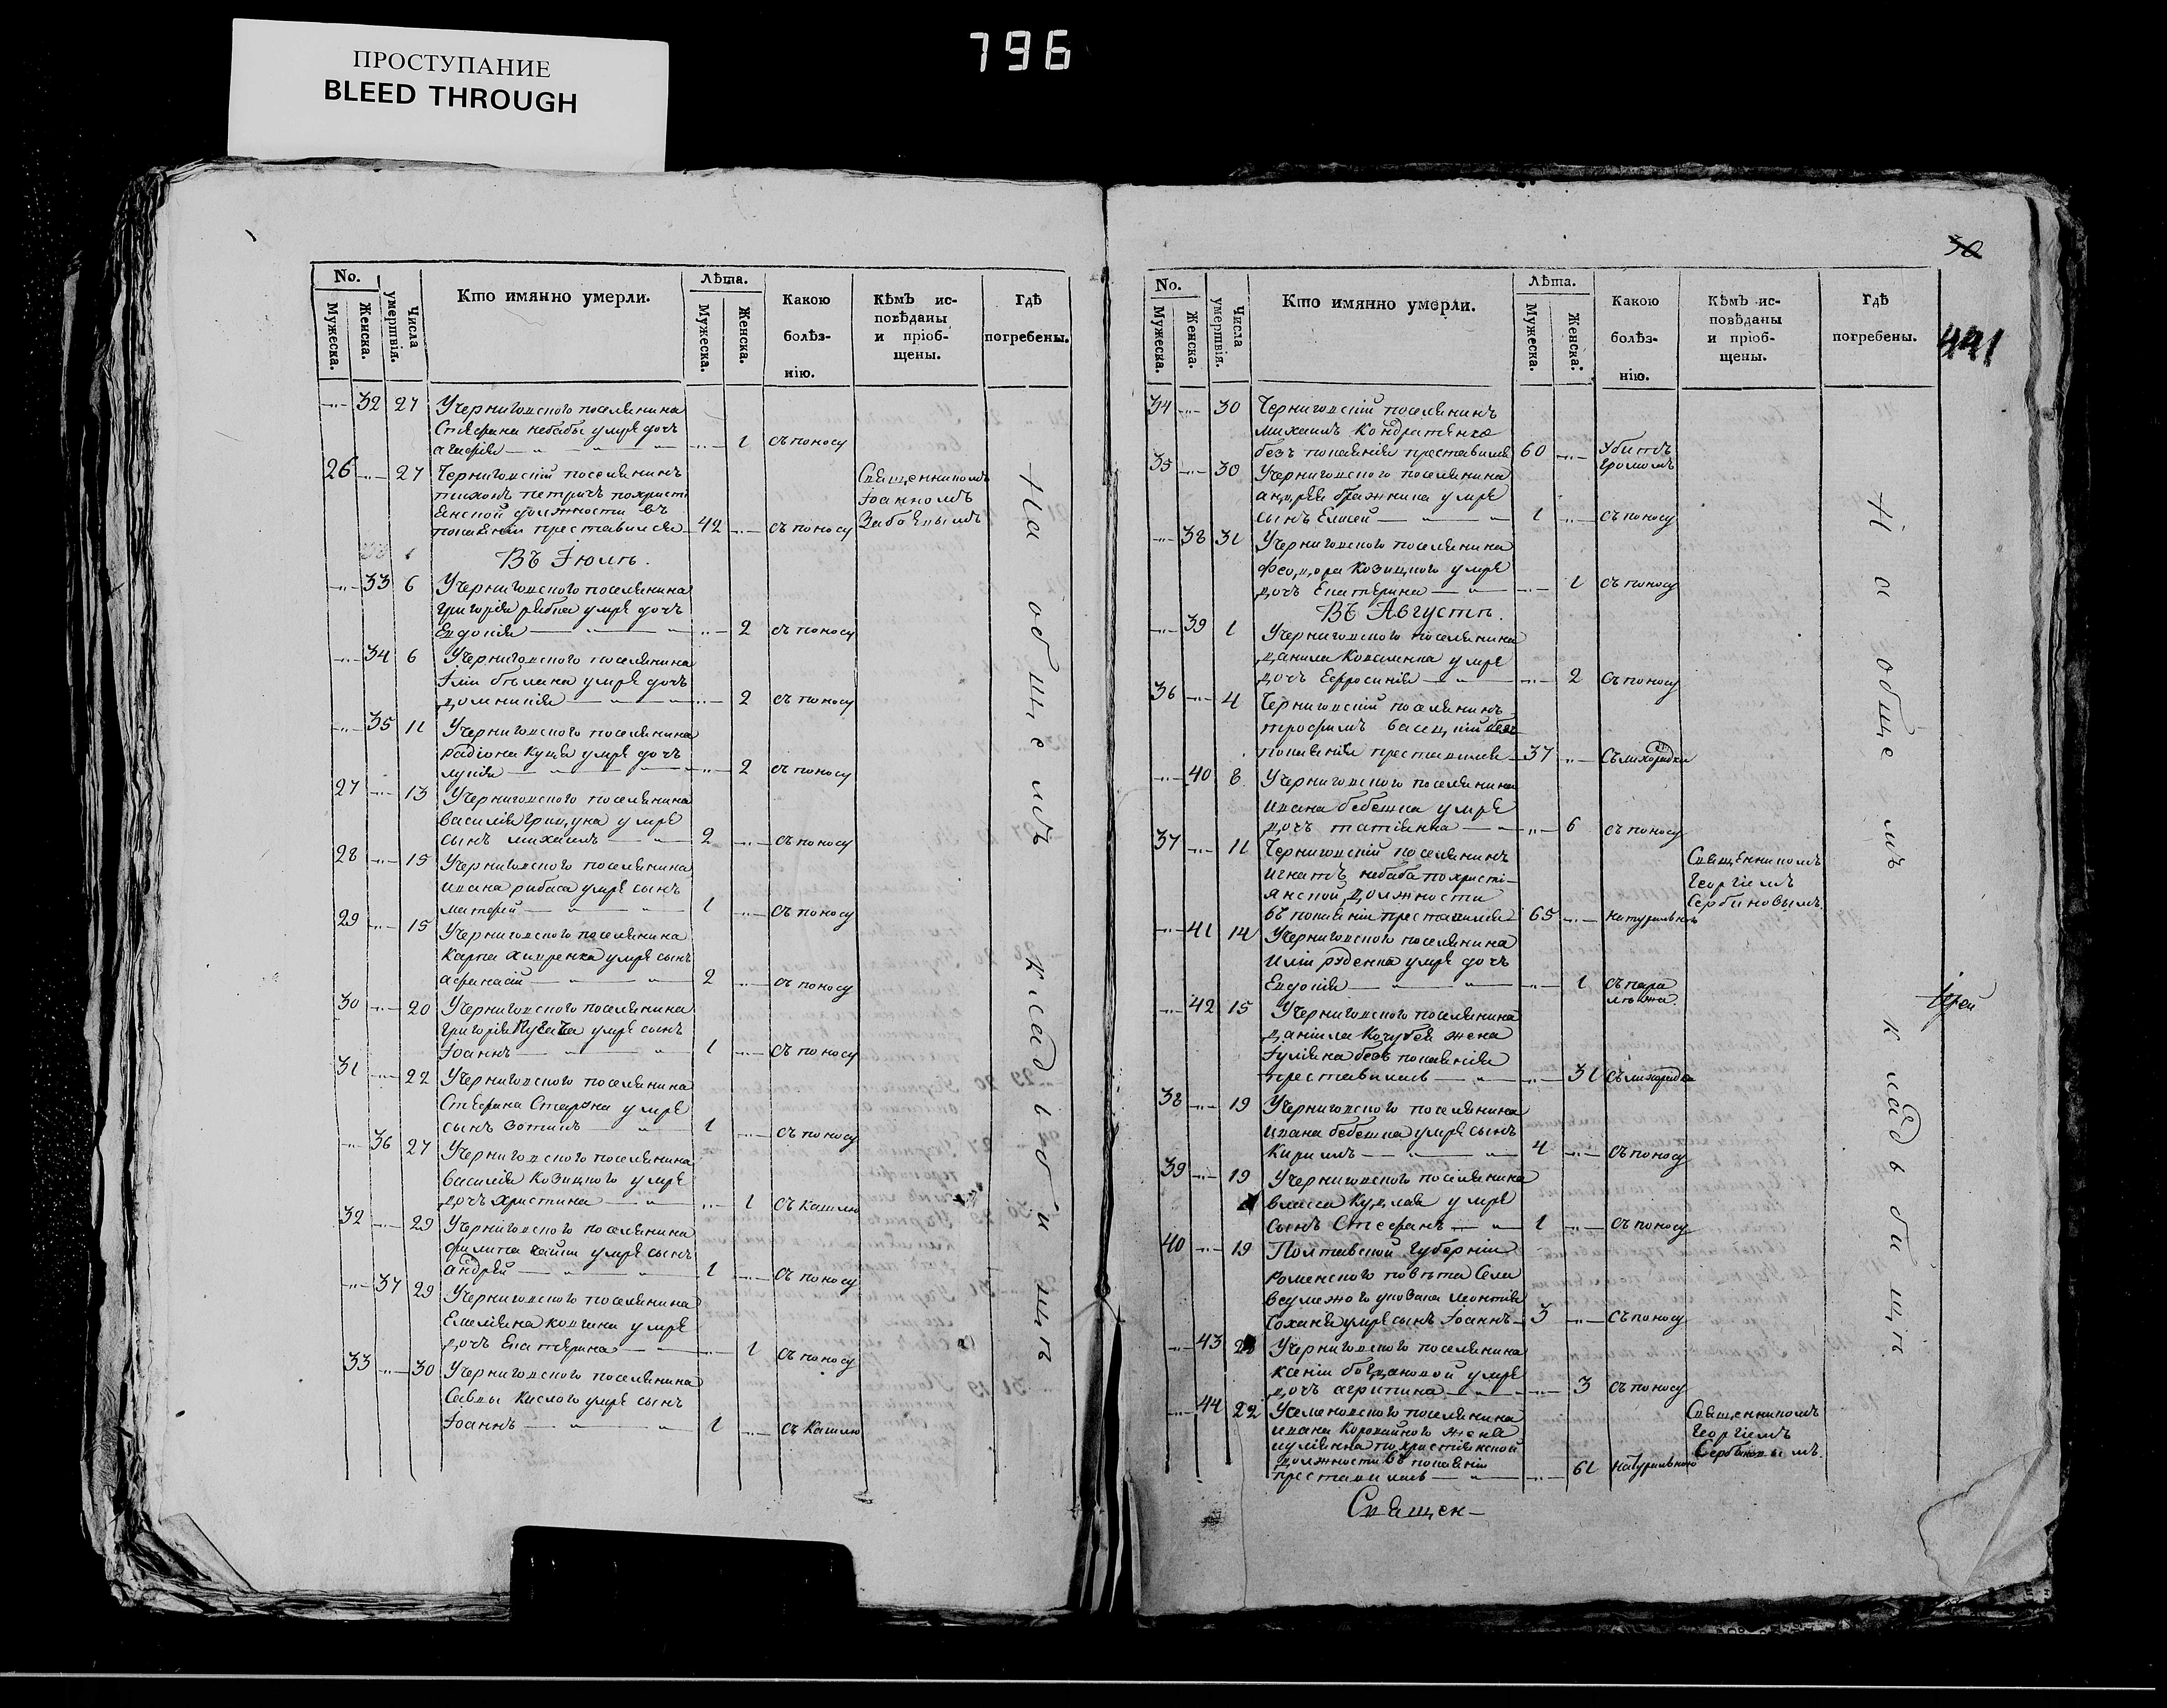 796
ПРОСТУПАНИЕ
BLEED THROUGH
No.
Мужеска.
Женска.
Числа умертвія.
Кто имянно умерли.
Лѣта.
Мужеска.
Женска.
Какою болѣз-нію.
Кѣмъ ис-
повѣданы
и пріоб-
щены.
Гдѣ
погребены.
32 27 Учерниговского поселянина
Стефана небабы умре дочь
агафія 1 съ поносу
26 27 Черниговскій поселянинъ
тихонъ петричъ похристі
янской должности въ
покаяніи преставился 42 съ поносу
Священникомъ
Іоанномъ
Въ Іюлѣ.
33 6 Учерниговского поселянина
григорія рябка умре дочь
Евдокія 2 съ поносу
34 6 Учерниговского поселянина
Іліи умре дочь
домникія 2 съ поносу
35 11 Учерниговского поселянина
радіона куція умре дочь
лукія 2 съ поносу
27 13 Учерниговского поселянина
василія грицука умре
сынъ михаилъ 2 съ поносу
28 15 Учерниговского поселянина
ивана рибаса умре сынъ
матфей 1 съ поносу
29 15 Учерниговского поселянина
Карпа умре сынъ
афанасій 2 съ поносу
30 20 Учерниговского поселянина
григорія Пугача умре сынъ
Іоаннъ 1 съ поносу
31 22 Учерниговского поселянина
Стефана умре
сынъ 1 съ поносу
36 27 Учерниговского поселянина
василія Козицкого умре
дочъ христина 1 съ кашлю
32 29 Учерниговского поселянина
филипа гайши умре сынъ
андрей 1 съ поносу
37 29 Учерниговского поселянина
Емеліяна умре
дочъ Екатерина 1 съ поносу
33 30 Учерниговского поселянина
Саввы Кислого умре сынъ
Іоаннъ 1 съ кашлю
На общемъ кладвбищѣ
30
441
No.
Мужеска.
Женска.
Числа умертвія.
Кто имянно умерли.
Лѣта.
Мужеска.
Женска.
Какою болѣз-нію.
Кѣмъ ис-
повѣданы
и пріоб-
щены.
Гдѣ
погребены.
34 30 Черниговскій поселянинъ
михаилъ Кондратенко
безъ покаянія преставился 60 Убитъ
громомъ
35 30 Учерниговского поселянина
андрея бражника умре
сынъ Елисей 1 съ поносу
38 31 Учерниговского поселянина
Феодора Козицкого умре
дочъ Екатерина 1 съ поносу
Въ Августѣ.
39 1 Учерниговского поселянина
данила Коваленка умре
дочъ Ефросинія 2 съ поносу
36 4 Черниговскій поселянинъ
трофимъ басецкій безъ
покаянія преставился 37 Съ лихорадки
40 8 Учерниговского поселянина
ивана бебешка умре
дочъ татіянна 6 съ поносу
37 11 Черниговскій поселянинъ
игнатъ небаба похристі-
янской должности
въ покаяніи преставился 65 натурально
Священникомъ
Георгіемъ
Сербиновымъ.
41 14 Учерниговского поселянина
иліи руденка умре дочъ
Евдокія 1 съ пара
42 15 Учерниговского поселянина
даніила Кочубея жена
Іуліяна безъ покаянія
преставилась 31 Съ лихорадки
38 19 Учерниговского поселянина
ивана бебешка умре сынъ
Кирилъ 4 съ поносу
39 19 Учерниговского поселянина
власа Кудлая умре
сынъ Стефанъ 1 съ поносу
40 19 Полтавской губерніи
роменского повѣта Села
леонтія
Соханя умре сынъ Іоаннъ 3 съ поносу
43 Учерниговского поселянина
Ксеніи богдановой умре
дочъ агрипина 3 съ поносу
44 22 Усеменовского поселянина
ивана Коровайного жена
иуліянна по христіянской
должности въ покаяніи
преставилась 61 натурально
Священникомъ
Георгіемъ
Сербиновымъ.
На общемъ кладвбищѣ.
Іерей
Священ-